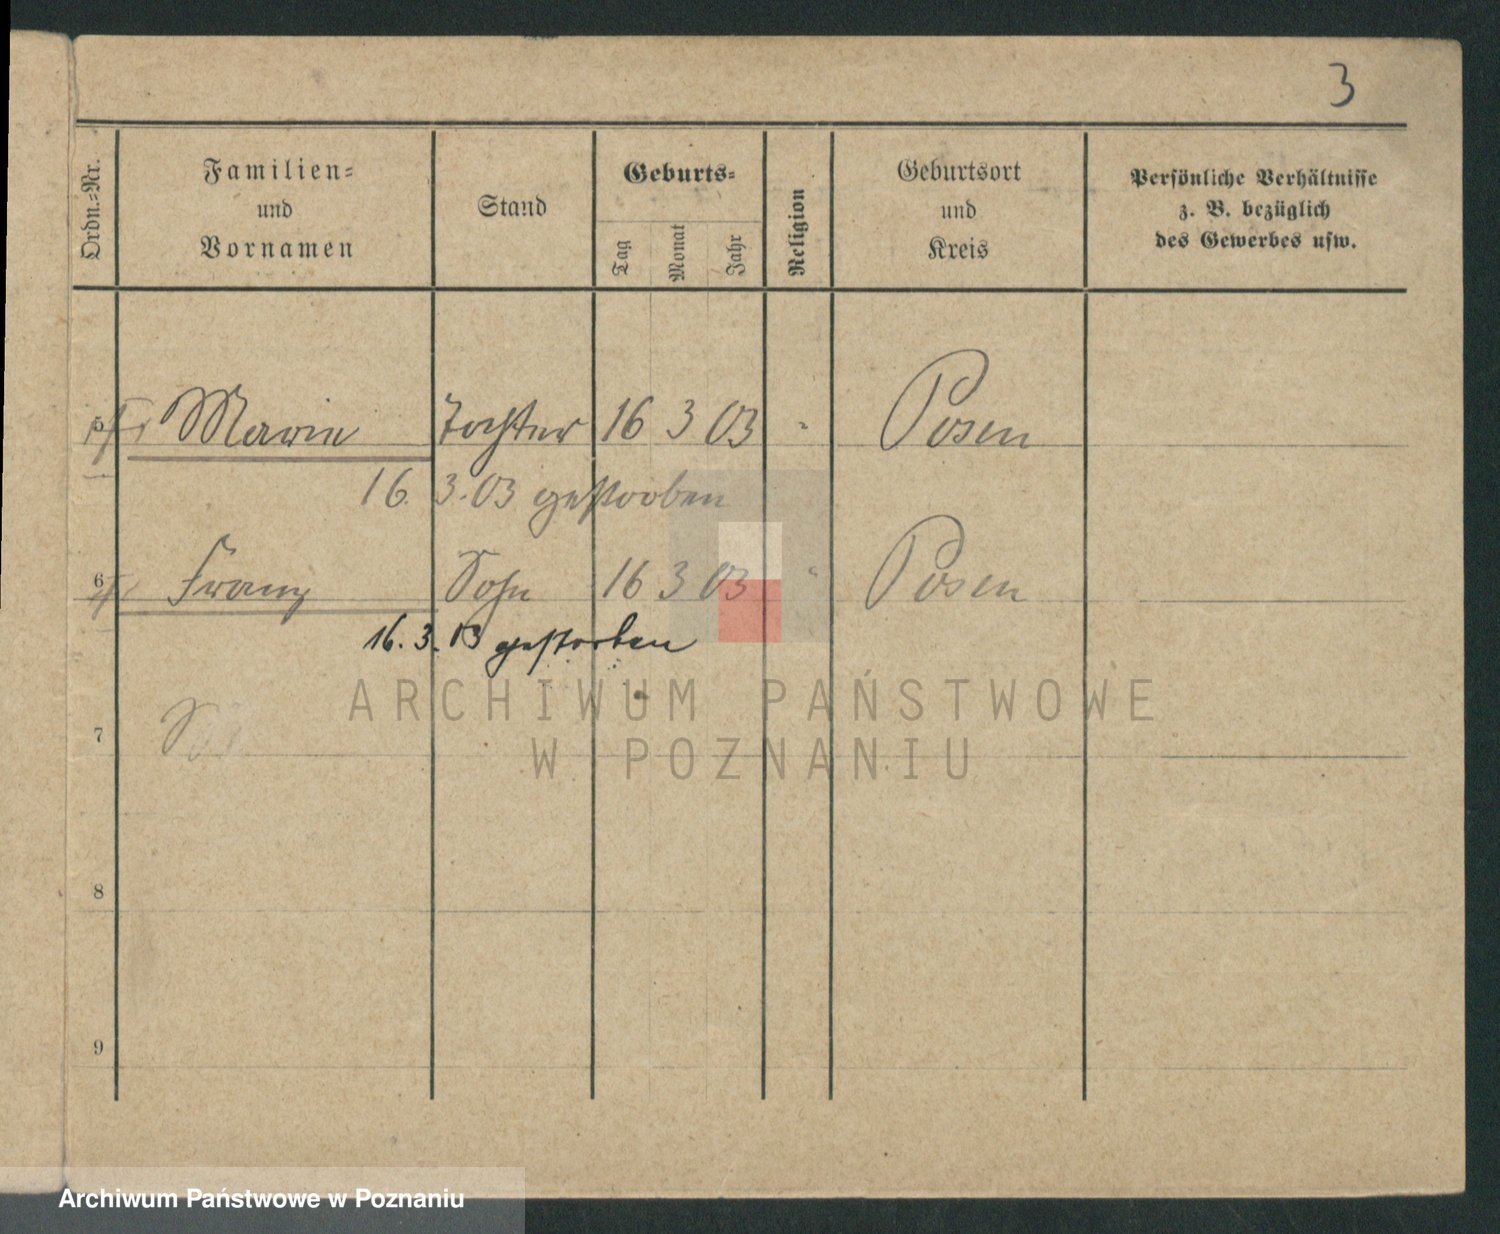 3
Ordn.-Nr.
Familien-
und
Vornamen
Stand
Geburts-
Tag
Monat
Jahr
Religion
Geburtsort
und
Kreis
Persönliche Verhältnisse
z. B. bezüglich
des Gewerbes usw.
5 Marie Tochter 16 3 03 " Posen
16. 3. 03 gestorben
6 Franz Sohn 16 3 03 " Posen
16. 3. 03 gestorben
7
8
9
ARCHIWUM PAŃSTWOWE
W POZNANIU
Archiwum Państwowe w Poznaniu